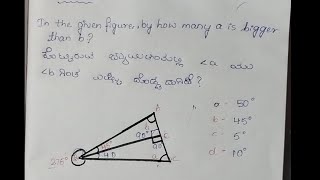 In the given figure, by how many a is bigger
than b?
ಕೊಟ್ಟಿರುವ ಚಿತ್ರದಲ್ಲಿ <a ಯು
<b ಗಿಂತ ಎಷ್ಟು ದೊಡ್ಡದಾಗಿದೆ?
a - 50°
b - 45°
c - 5°
d - 10°
90°
40
275°
C